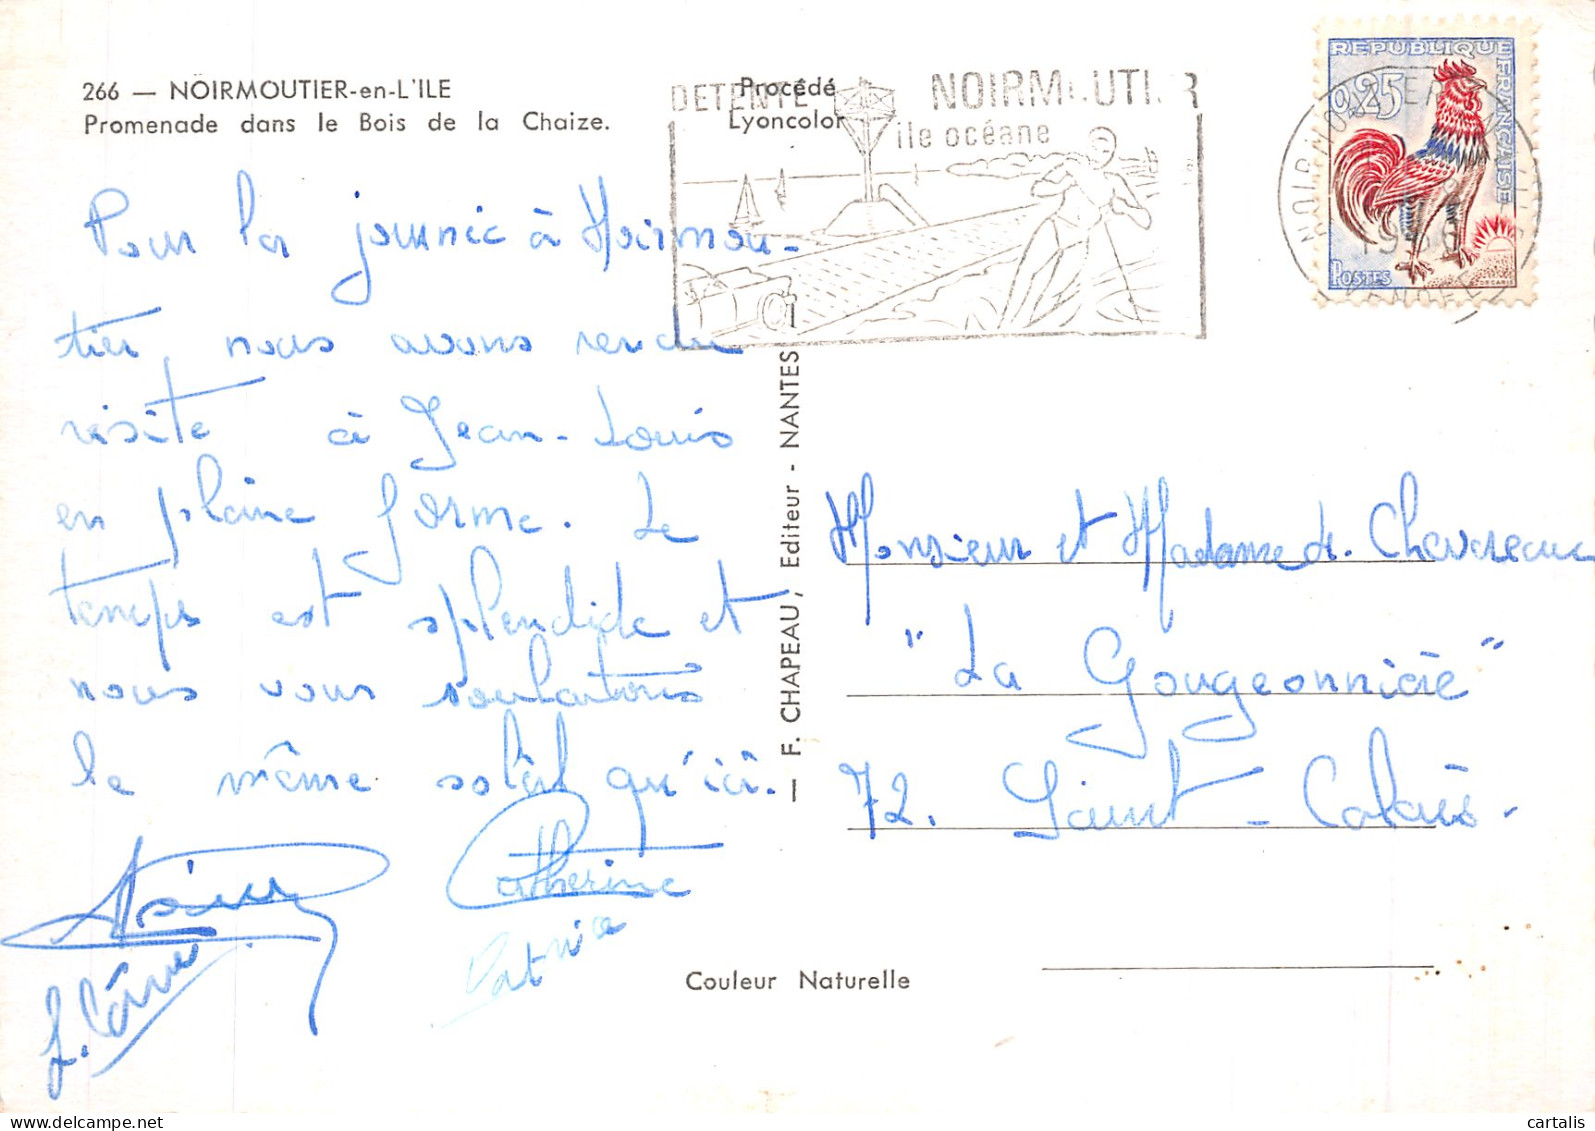 266 — NOIRMOUTIER-en-L'ILE
Promenade dans le Bois de la Chaize.
Procédé
Lyoncolor
DETENTE NOIRMOUTIER
ile océane
REPUBLIQUE FRANÇAISE
0,25
POSTES
DECARIS
Pour la journée à Noirmou-
tier, nous avons rendu
visite à Jean-Louis
en pleine forme. Le
temps est splendide et
nous vous souhaitons
le même soleil qu'ici.
Catherine
Patrice
— F. CHAPEAU, Editeur - NANTES
Monsieur et Madame de
"La Gougeonnière"
72. Saint-Calais.
Couleur Naturelle
cartalis